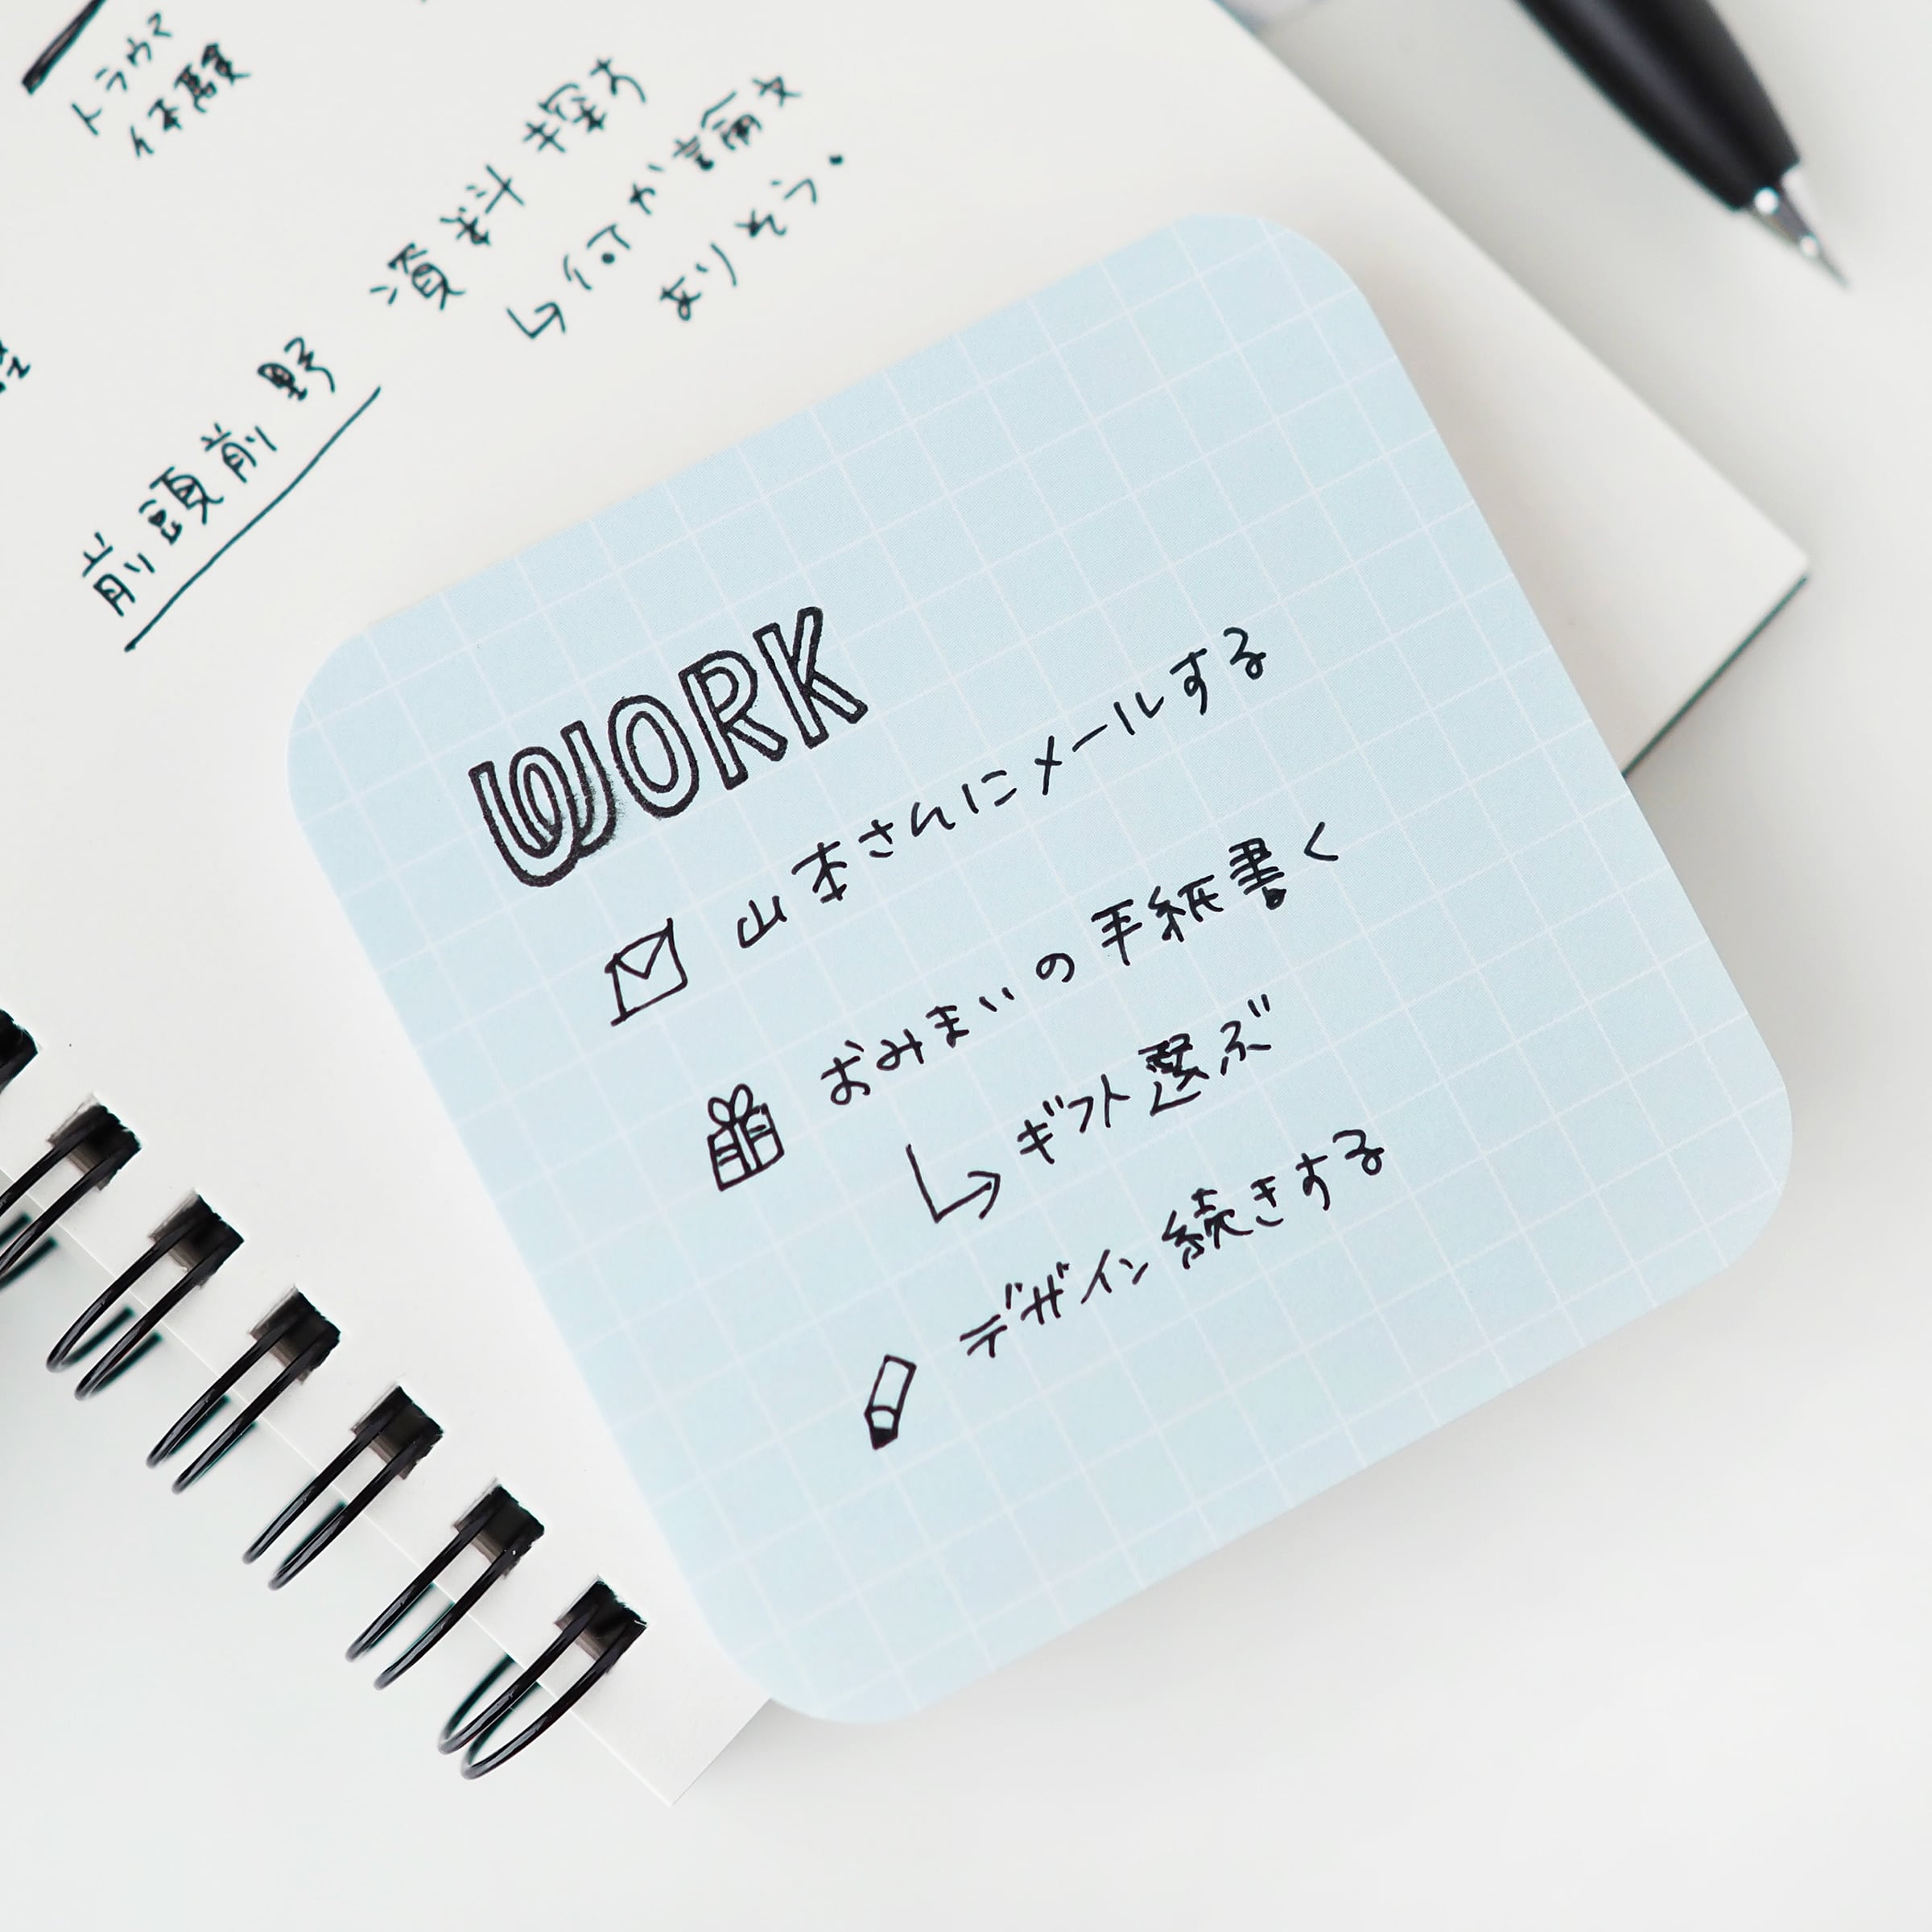 トラウマ
体験
資料探す
↳何か論文
ありそう。
前頭前野
WORK
山本さんにメールする
おみまいの手紙書く
↳ギフト選ぶ
デザイン続きする